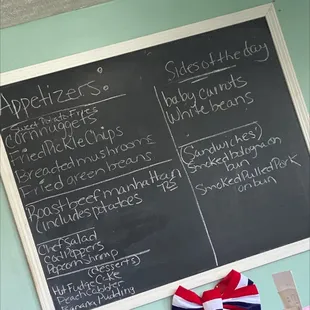 Appetizers:
Sweet Potato Fries
Corn nuggets
Fried Pickle Chips
Breaded mushrooms
Fried green beans
Roast beef manhattan
(includes potatoes
Chef Salad
Popcorn shrimp
(desserts)
Hot Fudge Cake
Peach Cobbler
Banana Pudding
Sides of the day
baby carrots
White beans
(Sandwiches)
Smoked bologna on
bun
Smoked Pulled Pork
on bun